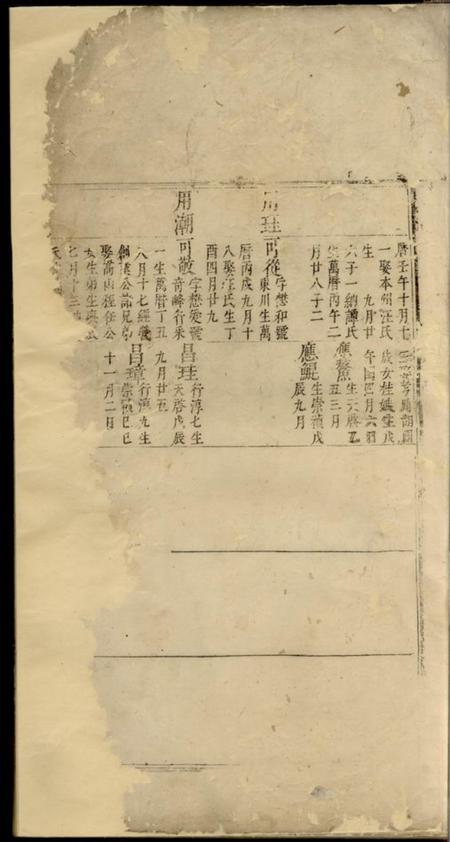 曆壬午十月七
一娶本州汪氏
生 九月廿
六子一納譚氏
生萬曆丙午二
月廿八子二
用珪可從字懋和號
東川生萬
曆丙戌九月十
八娶汪氏生丁
酉四月廿九
用潮可敬字懋愛號
奇峰行禾
一生萬曆丁丑
八月十七經營
公諱兄弟
娶高山汪任公
女生弟生
七月十三
湖廣
歲女娃娥生戊
午四月六
應鰲生天啓乙
丑三月
應鯤生崇禎戊
辰九月
昌珪行淳七生
天啓戊辰
九月廿五
昌璋行淳九生
崇禎己巳
十一月二日